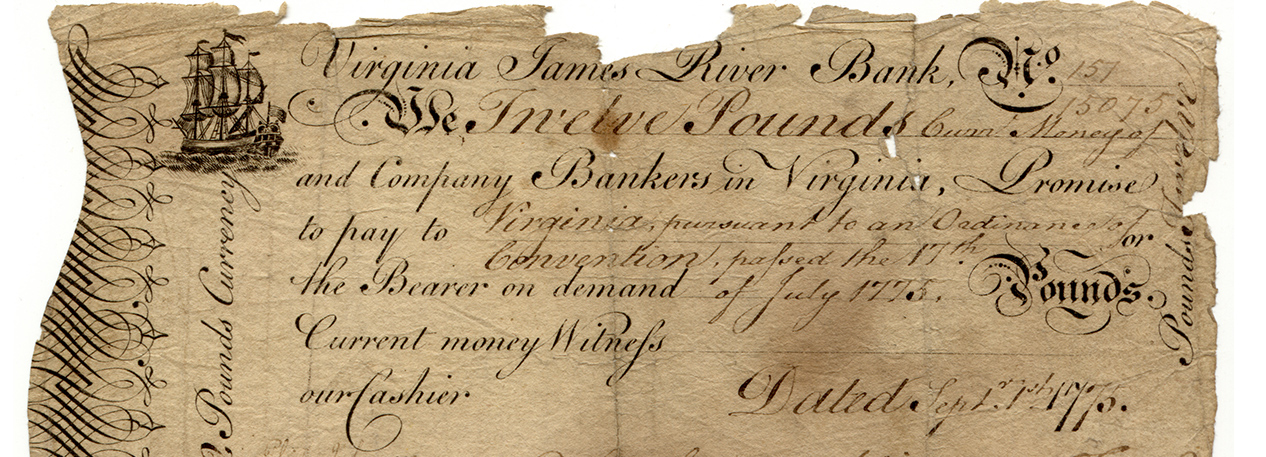 Virginia James River Bank, No. 151
15075
We, Twelve Pounds Curr.t Money of
and Company Bankers in Virginia, Promise
to pay to Virginia, pursuant to an Ordinance of
or
Convention, paſsed the 17th
the Bearer on demand of July 1775. Pounds.
Current money Witneſs
our Cashier Dated Sept.r 1st 1775.
Pounds Currency
Twelve Pounds